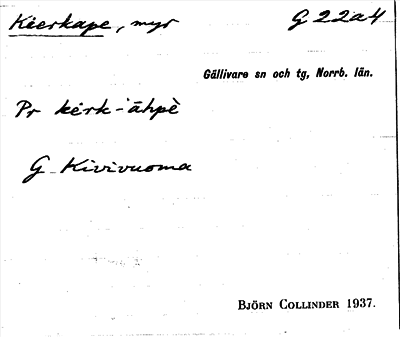 Kierkape, myr G 22a4
Gällivare sn och tg, Norrb. län.
Pr kérk-āhpè
G Kivivuoma
BJÖRN COLLINDER 1937.